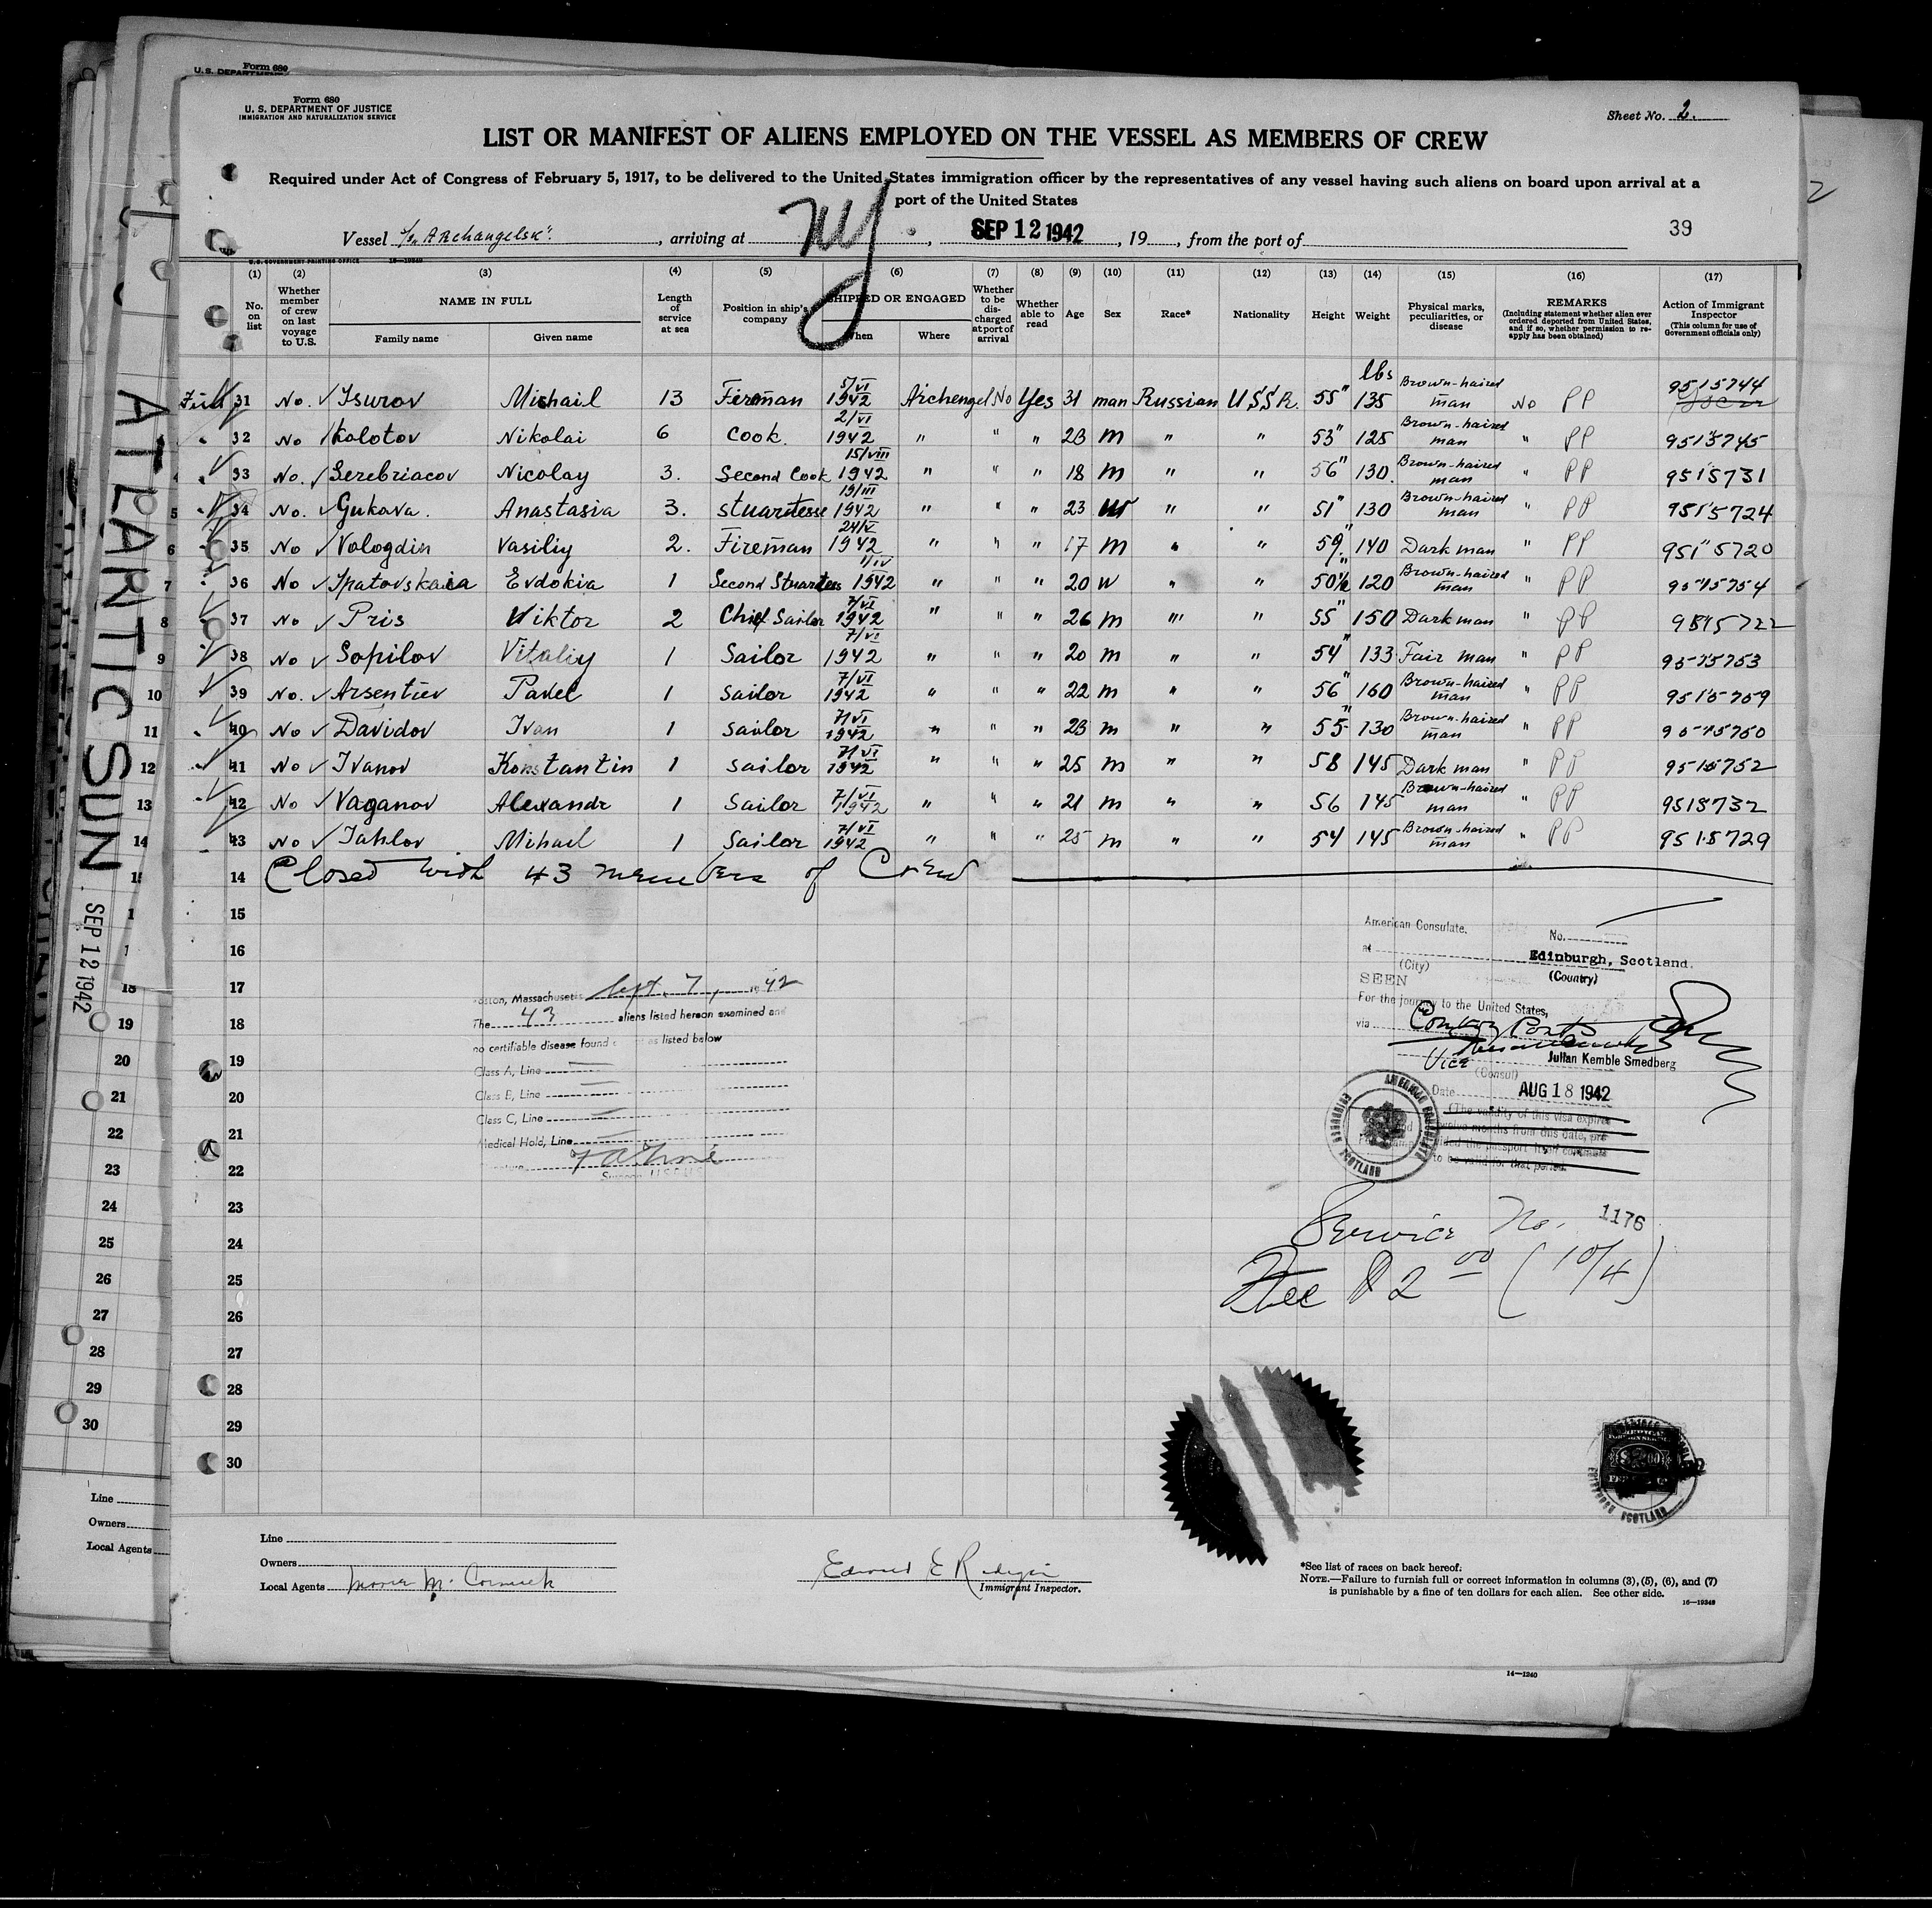 Form 680
U. S. DEPARTMENT OF JUSTICE
IMMIGRATION AND NATURALIZATION SERVICE
Sheet No. 2.
LIST OR MANIFEST OF ALIENS EMPLOYED ON THE VESSEL AS MEMBERS OF CREW
Required under Act of Congress of February 5, 1917, to be delivered to the United States immigration officer by the representatives of any vessel having such aliens on board upon arrival at a
port of the United States
Vessel "Archangelsk", arriving at NY, SEP 12 1942, 19, from the port of
39
(1) (2) (3) (4) (5) (6) (7) (8) (9) (10) (11) (12) (13) (14) (15) (16) (17)
No. on list
Whether member of crew on last voyage to U.S.
NAME IN FULL
Family name Given name
Length of service at sea
Position in ship's company
SHIPPED OR ENGAGED
When Where
Whether to be discharged at port of arrival
Whether able to read
Age
Sex
Race*
Nationality
Height
Weight
Physical marks, peculiarities, or disease
REMARKS
(Including statement whether alien ever ordered deported from United States, and if so, whether permission to reapply has been obtained)
Action of Immigrant Inspector
(This column for use of Government officials only)
lbs
31 No. Isurov Michail 13 Fireman 5/VI 1942 Archengel No Yes 31 man Russian U.S.S.R. 55" 135 Brown-haired man No PP 9515744
32 No Kolotov Nikolai 6 Cook. 2/VI 1942 " " " 23 m " " 53" 125 Brown-haired man " PP 9515745
33 No. Serebriacov Nicolay 3. Second Cook 15/VIII 1942 " " " 18 m " " 56" 130. Brown-haired man " PP 9515731
34 No. Gukova. Anastasia 3. Stuardesse 19/III 1942 " " " 23 w " " 51" 130 Brown-haired man " PP 9515724
35 No Vologdin Vasiliy 2. Fireman 24/V 1942 " " " 17 m " " 59" 140 Dark man " PP 9515720
36 No Ipatovskaia Evdokia 1 Second Stuardess 1/IV 1942 " " " 20 w " " 50½" 120 Brown-haired man " PP 9515754
37 No Pris Viktor 2 Chief Sailor 7/VI 1942 " " " 26 m " " 55" 150 Dark man " PP 9515722
38 No Sopilov Vitaliy 1 Sailor 7/VI 1942 " " " 20 m " " 54" 133 Fair man " PP 9515753
39 No. Arsentiev Pavel 1 Sailor 7/VI 1942 " " " 22 m " " 56" 160 Brown-haired man " PP 9515759
40 No Davidov Ivan 1 Sailor 7/VI 1942 " " " 23 m " " 55" 130 Brown-haired man " PP 9515750
41 No Ivanov Konstantin 1 Sailor 7/VI 1942 " " " 25 m " " 58 145 Dark man " PP 9515752
42 No Vaganov Alexandr 1 Sailor 7/VI 1942 " " " 21 m " " 56 145 Brown-haired man " PP 9515732
43 No Tahlov Mihail 1 Sailor 7/VI 1942 " " " 25 m " " 54 145 Brown-haired man " PP 9515729
14 Closed with 43 members of Crew
15
16
17
18
19
20
21
22
23
24
25
26
27
28
29
30
Boston, Massachusetts Sept. 7, 1942
The 43 aliens listed hereon examined and
no certifiable disease found as listed below
Class A, Line
Class B, Line
Class C, Line
Medical Hold, Line
Surgeon
American Consulate.
No.
at Edinburgh, Scotland.
(City) (Country)
SEEN
For the journey to the United States,
via Convoy Ports
Vice Julian Kemble Smedberg
(Consul)
Date AUG 18 1942
(The validity of this visa expires
twelve months from this date, pro-
vided the passport itself continues
to be valid for that period.
AMERICAN CONSULATE
EDINBURGH SCOTLAND
Service No. 1176
Fee $2 00 (10/4)
Line
Owners
Local Agents Moore Mc Cormack
Immigrant Inspector.
*See list of races on back hereof.
NOTE.—Failure to furnish full or correct information in columns (3), (5), (6), and (7)
is punishable by a fine of ten dollars for each alien. See other side.
16—19349
14—1240
ATLANTIC SUN
SEP 12 1942
Form 680
Line
Owners
Local Agents